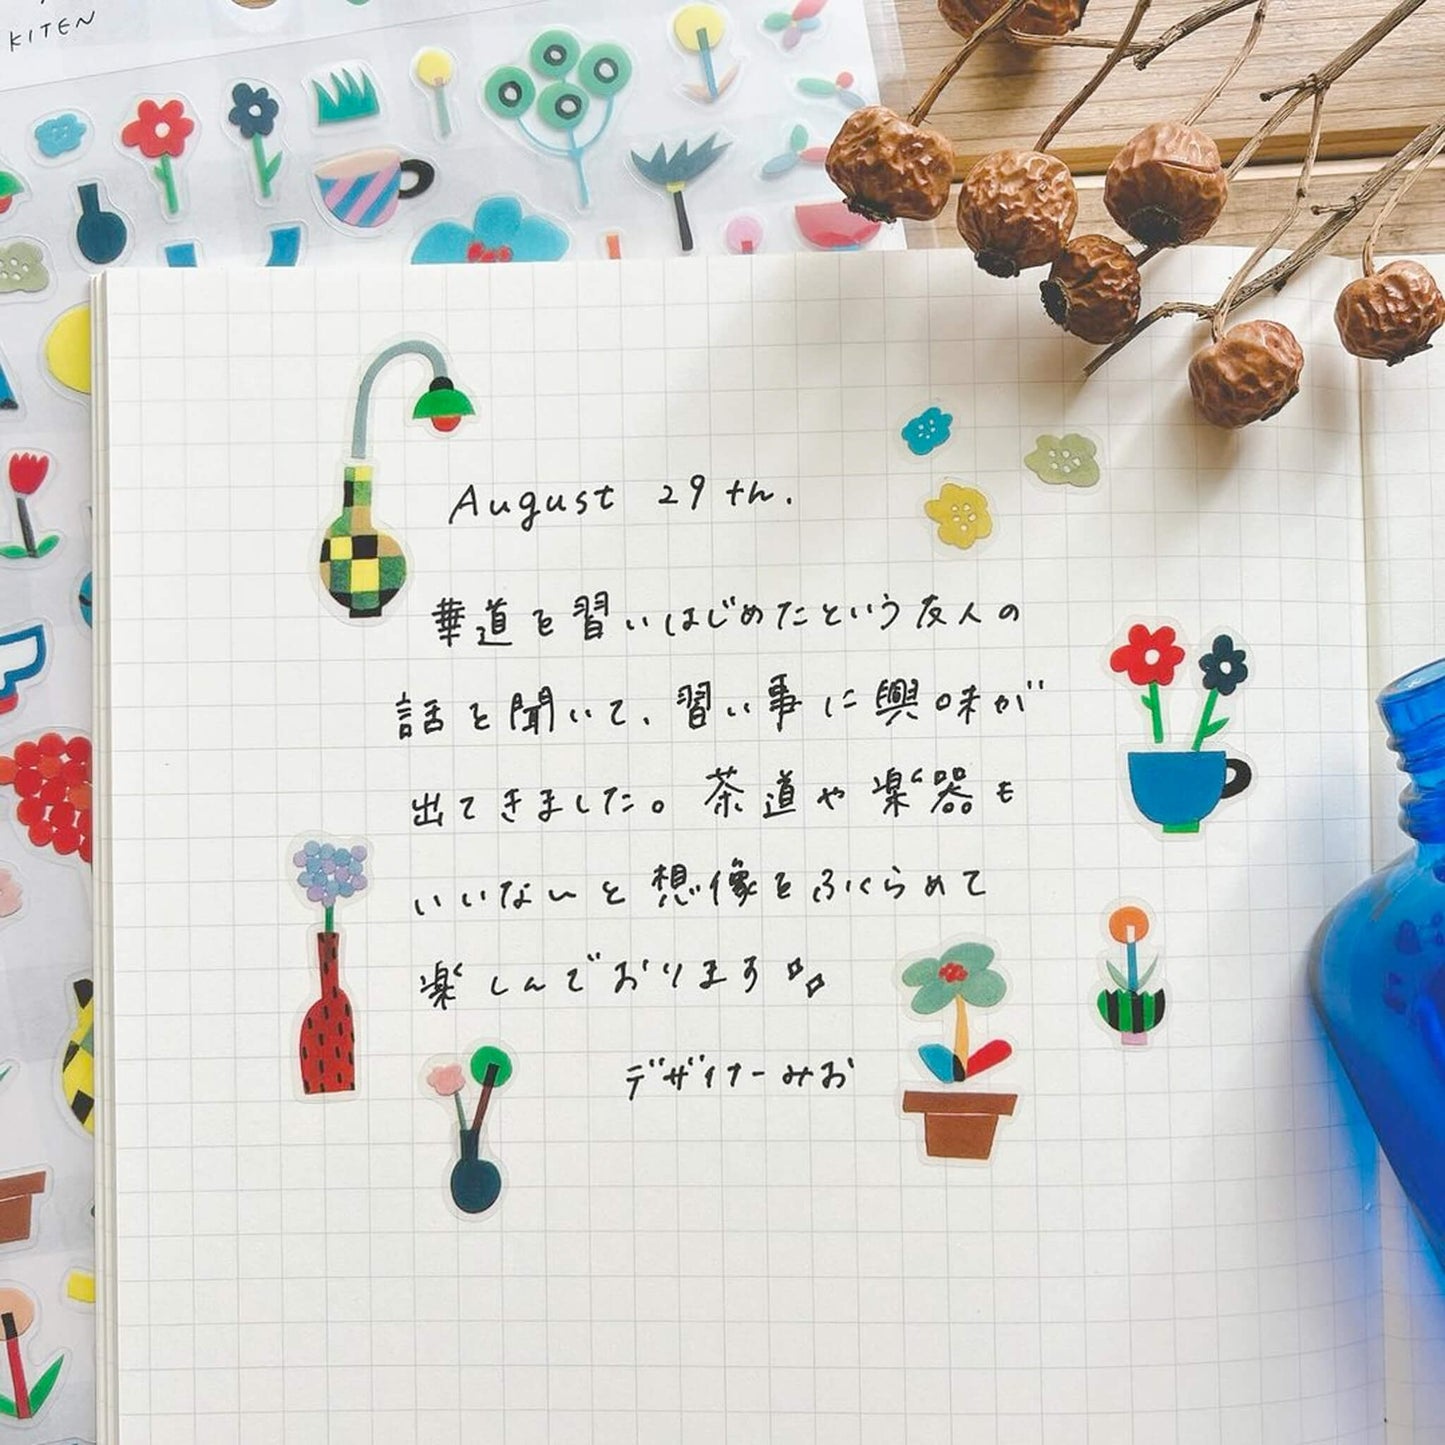 KITEN
August 29th.
華道を習いはじめたという友人の
話を聞いて、習い事に興味が
出てきました。茶道や楽器も
いいなぁと想像をふくらめて
楽しんでおります
デザイナーみお